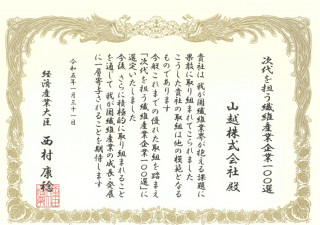 次代を担う繊維産業企業一〇〇選
山越株式会社 殿
貴社は我が国繊維業界が抱える課題に
果敢に取り組まれてこられました
こうした貴社の取組は他の模範となる
ものであります
今般これまでの優れた取組を踏まえ
「次代を担う繊維産業企業一〇〇選」に
選定いたしました
今後さらに積極的に取り組まれること
を通して我が国繊維産業の成長・発展
に一層寄与されることを期待します
令和五年一月三十一日
経済産業大臣 西村康稔